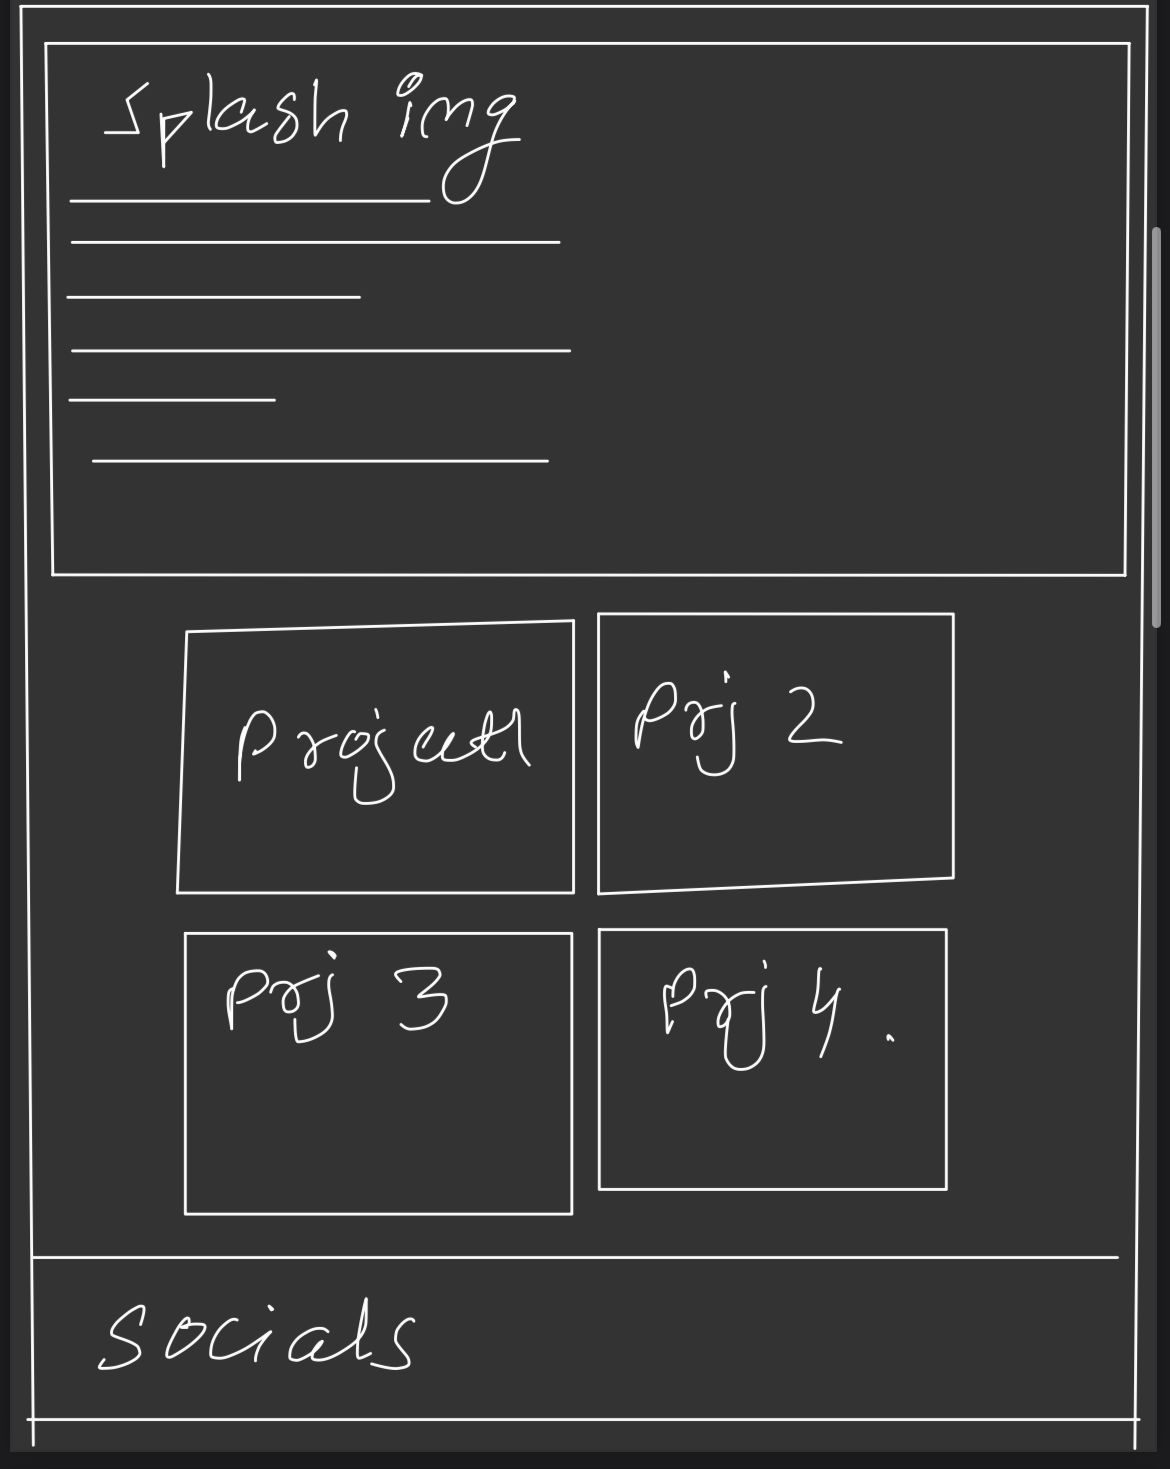 Splash img
Project1
Prj 2
Prj 3
Prj 4.
Socials